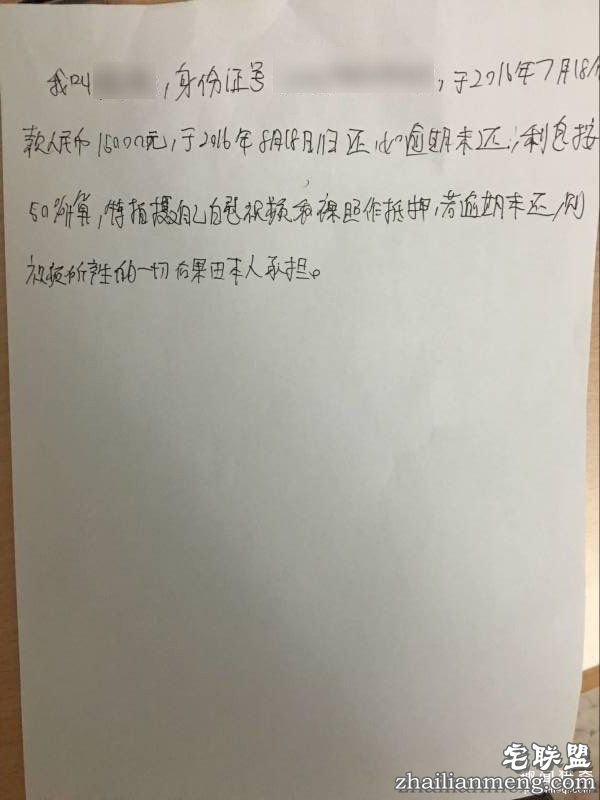 我叫 ,身份证号 ,于2016年7月18借
款人民币15000元,于2016年8月18日归还,如逾期未还,利息按
50%算,特拍摄自己自慰视频和裸照作抵押,若逾期未还,则
视频所产生的一切后果由本人承担。
宅联盟
zhailianmeng.com